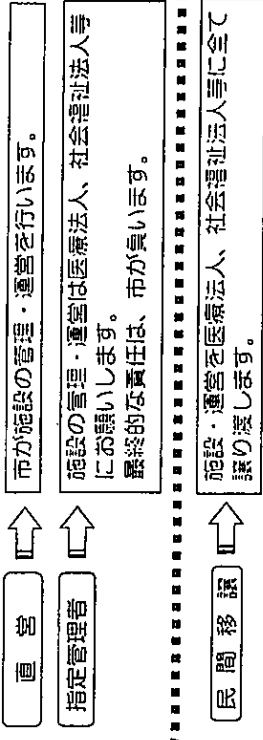 直営
市が施設の管理・運営を行います。
指定管理者
施設の管理・運営は医療法人、社会福祉法人等
にお願いします。
最終的な責任は、市が負います。
民間移譲
施設・運営を医療法人、社会福祉法人等に全て
譲り渡します。